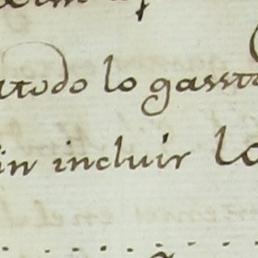 todo lo gassto
in incluir lo